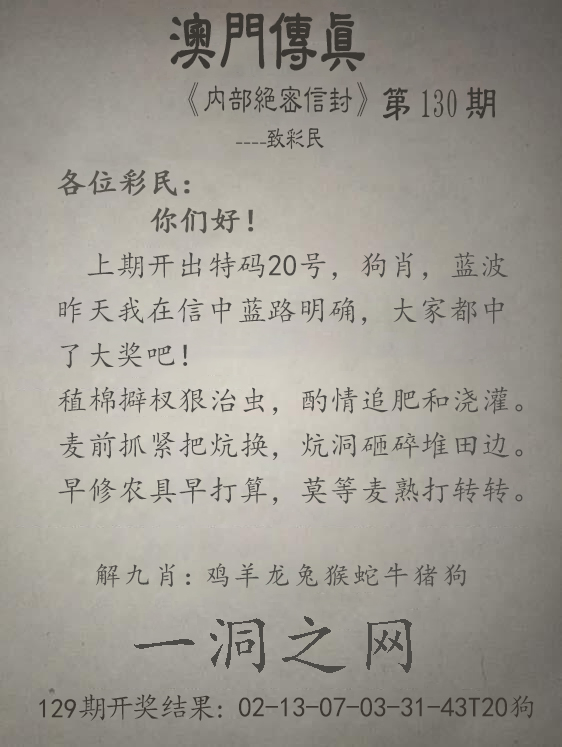 澳門傳真
《内部絕密信封》第130期
----致彩民
各位彩民：
你们好！
上期开出特码20号，狗肖，蓝波
昨天我在信中蓝路明确，大家都中
了大奖吧！
植棉擗杈狠治虫，酌情追肥和浇灌。
麦前抓紧把炕换，炕洞砸碎堆田边。
早修农具早打算，莫等麦熟打转转。
解九肖：鸡羊龙兔猴蛇牛猪狗
一洞之网
129期开奖结果：02-13-07-03-31-43T20狗